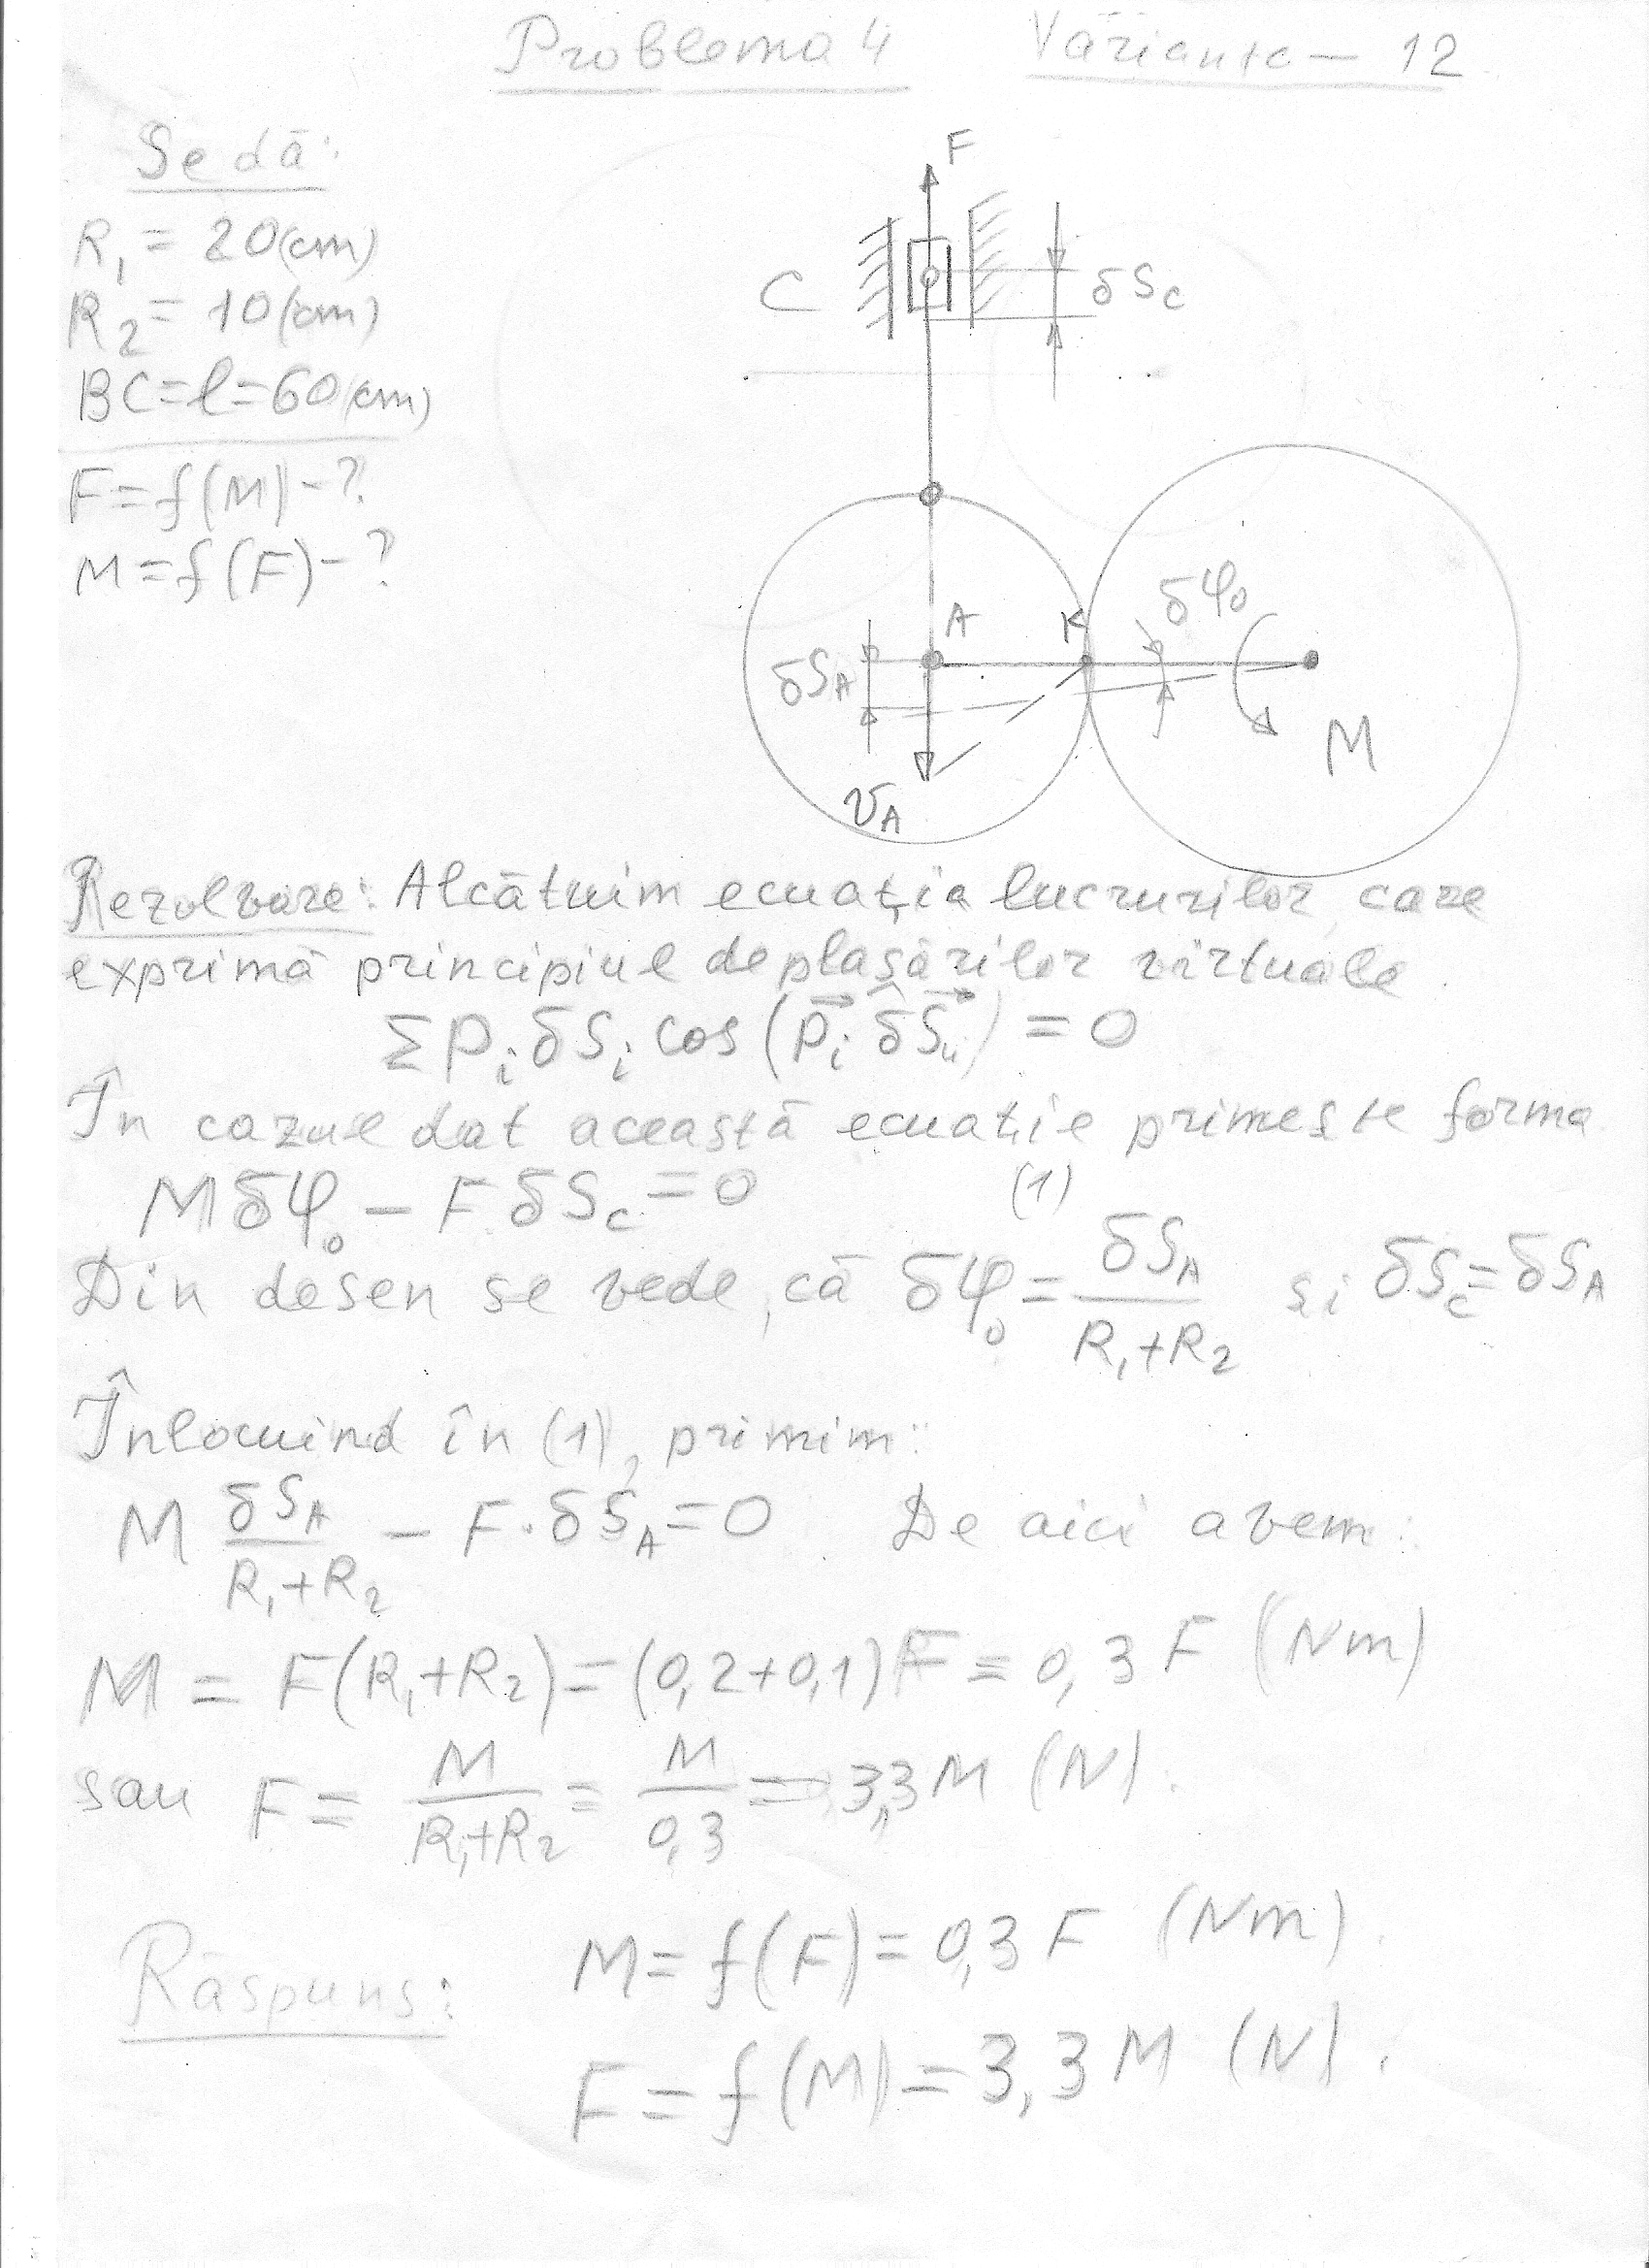 Problema 4 Varianta — 12
Se dă:
R₁ = 20 (cm)
R₂ = 10 (cm)
BC = l = 60 (cm)
F = f(M) - ?
M = f(F) - ?
F
C
δSc
δφ₀
A
K
δSA
M
vA
Rezolvare: Alcătuim ecuația lucrurilor, care
exprimă principiul deplasărilor virtuale.
Σ Pᵢ δSᵢ cos (P⃗ᵢ ^ δS⃗ᵢ) = 0
În cazul dat această ecuație primește forma
Mδφ₀ - F δSc = 0 (1)
Din desen se vede, că δφ₀ = δSA / (R₁+R₂) și δSc = δSA
Înlocuind în (1), primim:
M δSA / (R₁+R₂) - F · δSA = 0. De aici avem:
M = F(R₁+R₂) = (0,2+0,1)F = 0,3 F (Nm)
sau F = M / (R₁+R₂) = M / 0,3 = 3,3 M (N).
Răspuns: M = f(F) = 0,3 F (Nm).
F = f(M) = 3,3 M (N).